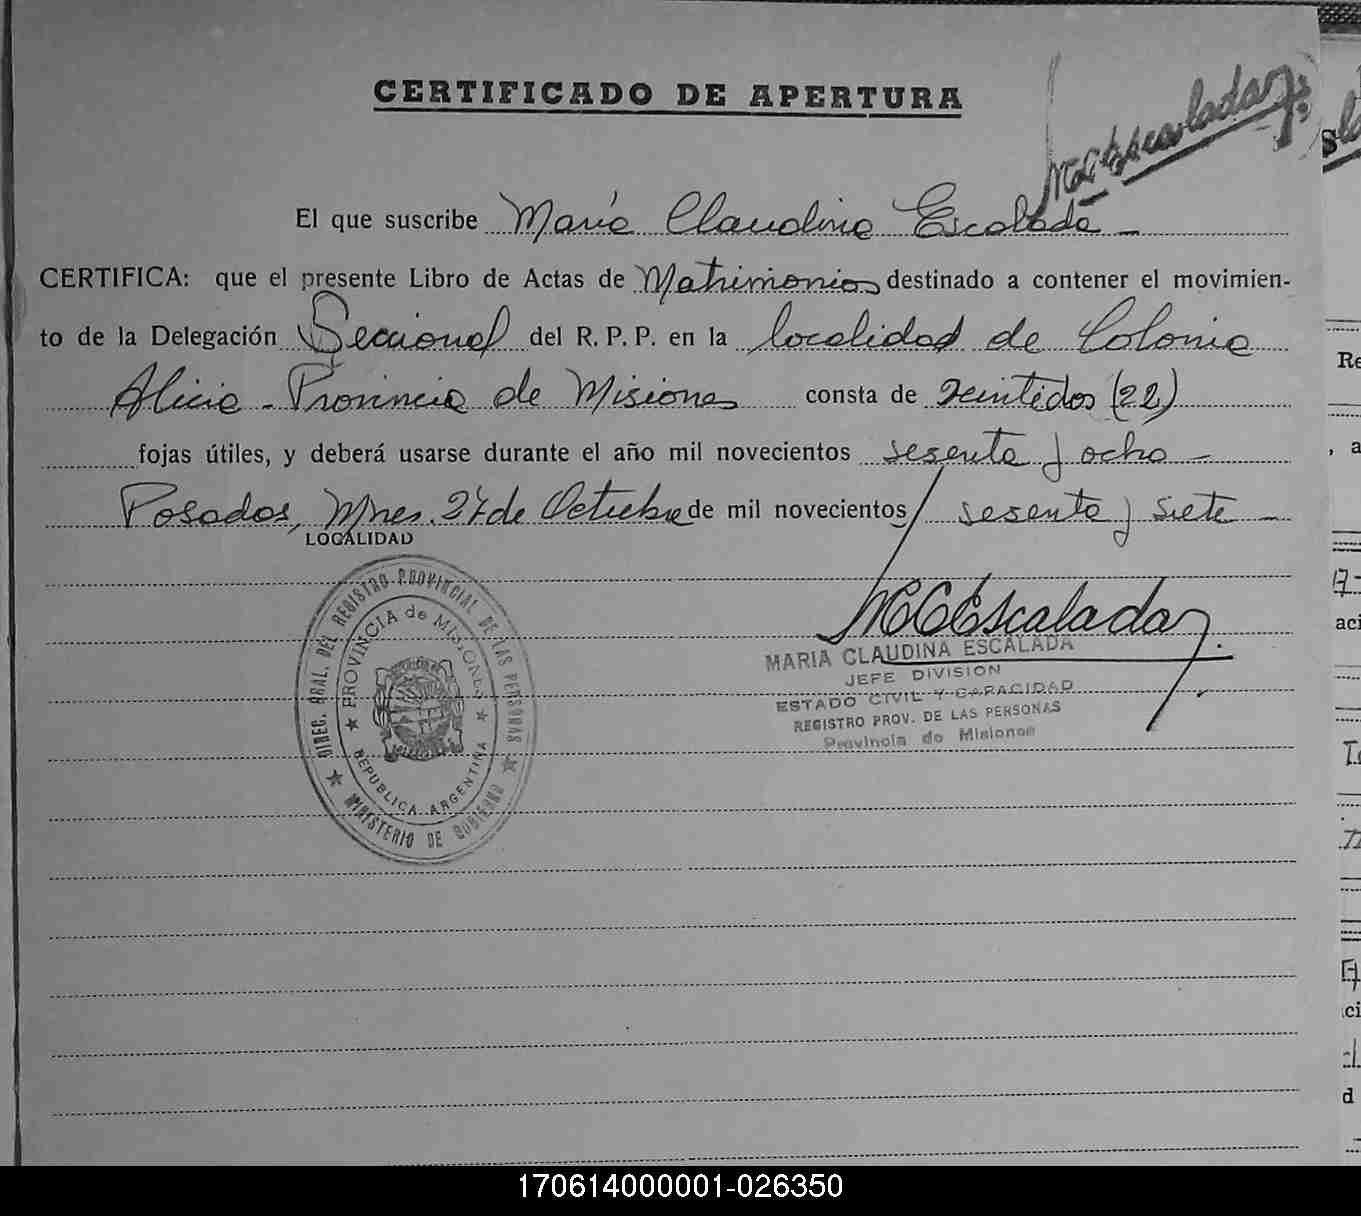 CERTIFICADO DE APERTURA
MCEscalada
El que suscribe María Claudina Escalada -
CERTIFICA: que el presente Libro de Actas de Matrimonios destinado a contener el movimien-
to de la Delegación Seccional del R. P. P. en la localidad de Colonia
Alicia - Provincia de Misiones consta de Veintidos (22)
fojas útiles, y deberá usarse durante el año mil novecientos sesenta y ocho -
Posadas, Mnes. 27 de Octubre de mil novecientos sesenta y siete -
LOCALIDAD
MCEscalada
MARIA CLAUDINA ESCALADA
JEFE DIVISION
ESTADO CIVIL Y CAPACIDAD
REGISTRO PROV. DE LAS PERSONAS
Provincia de Misiones
DIREC. GRAL. DEL REGISTRO PROVINCIAL DE LAS PERSONAS
PROVINCIA de MISIONES
REPUBLICA ARGENTINA
MINISTERIO DE GOBIERNO
170614000001-026350